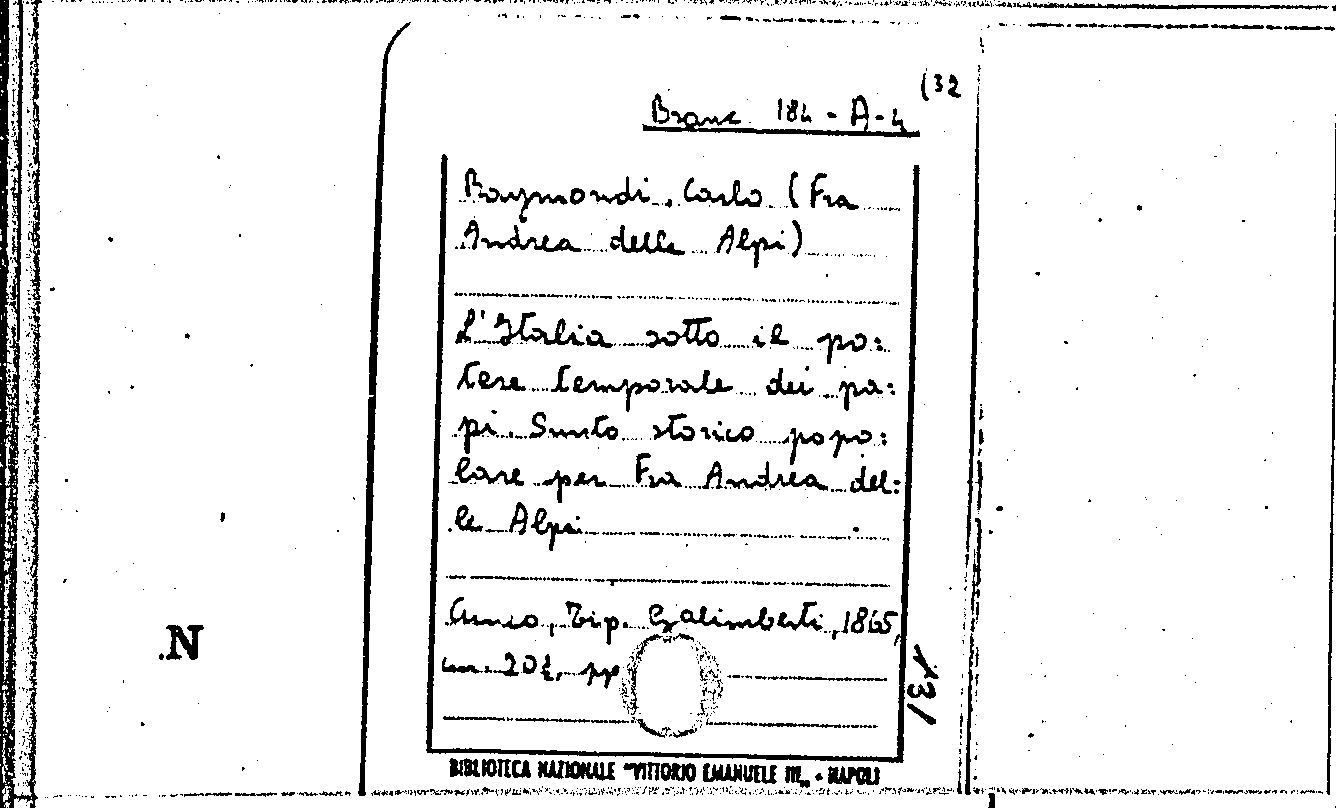 (32
Branc 184-A-4
Raymondi, Carlo (Fra
Andrea delle Alpi)
L'Italia sotto il po:
tere temporale dei pa:
pi. Sunto storico popo:
lare per Fra Andrea del:
le Alpi
Cuneo, Tip. Galimberti, 1865,
in 20½, pp
131
N
BIBLIOTECA NAZIONALE "VITTORIO EMANUELE III„ - NAPOLI